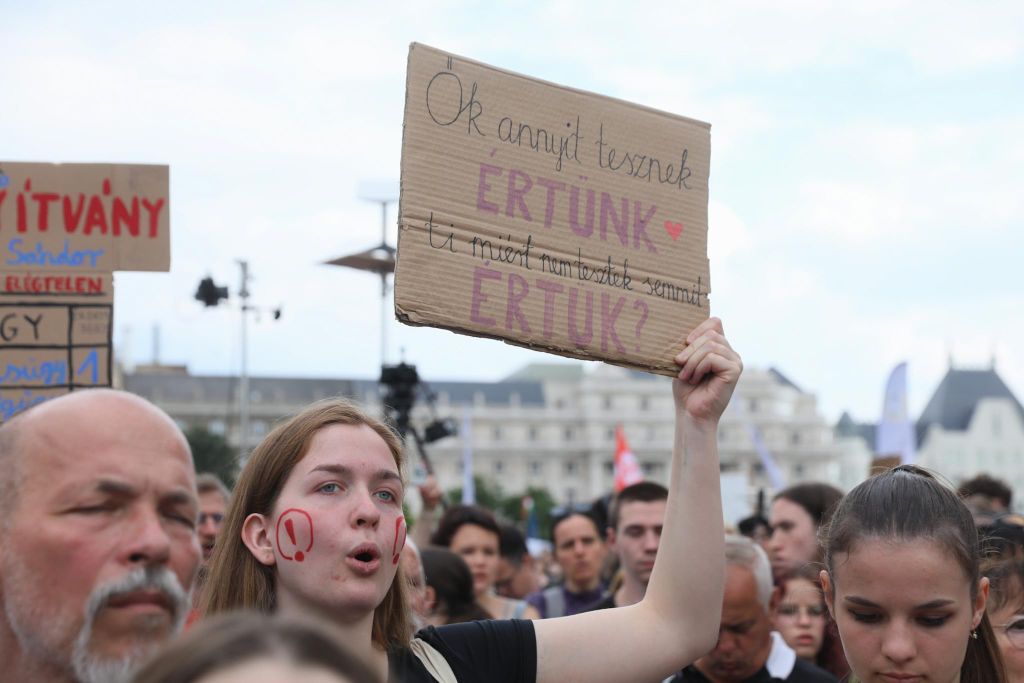 YÍTVÁNY
Sándor
ELÉGTELEN
GY
1
Ők annyit tesznek
ÉRTÜNK
ti miért nem tesztek semmit
ÉRTÜK?
!